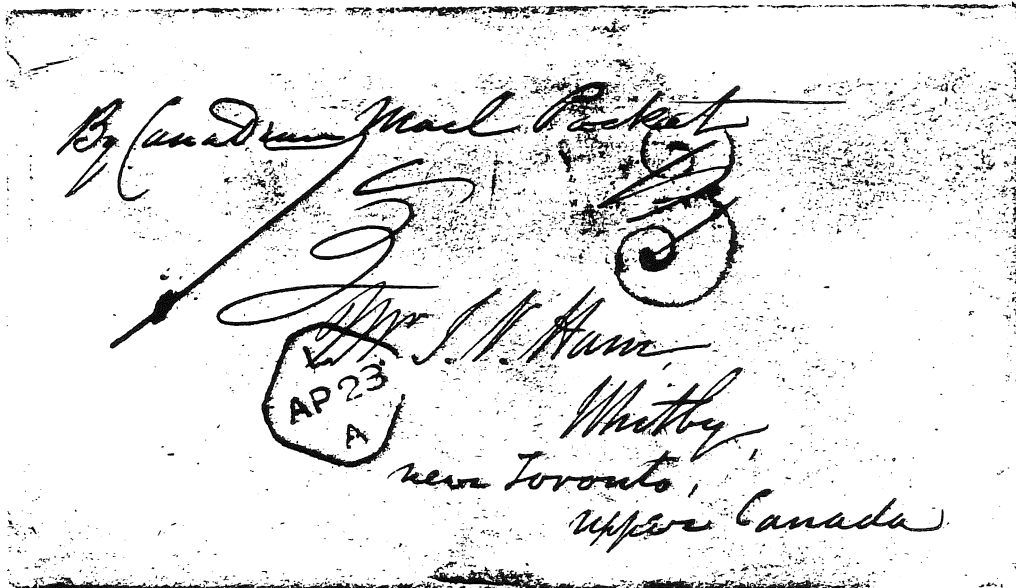 By Canadian Mail Packet
3
Mr J. N. Ham,
L
AP 23
A
Whitby,
near Toronto,
upper Canada